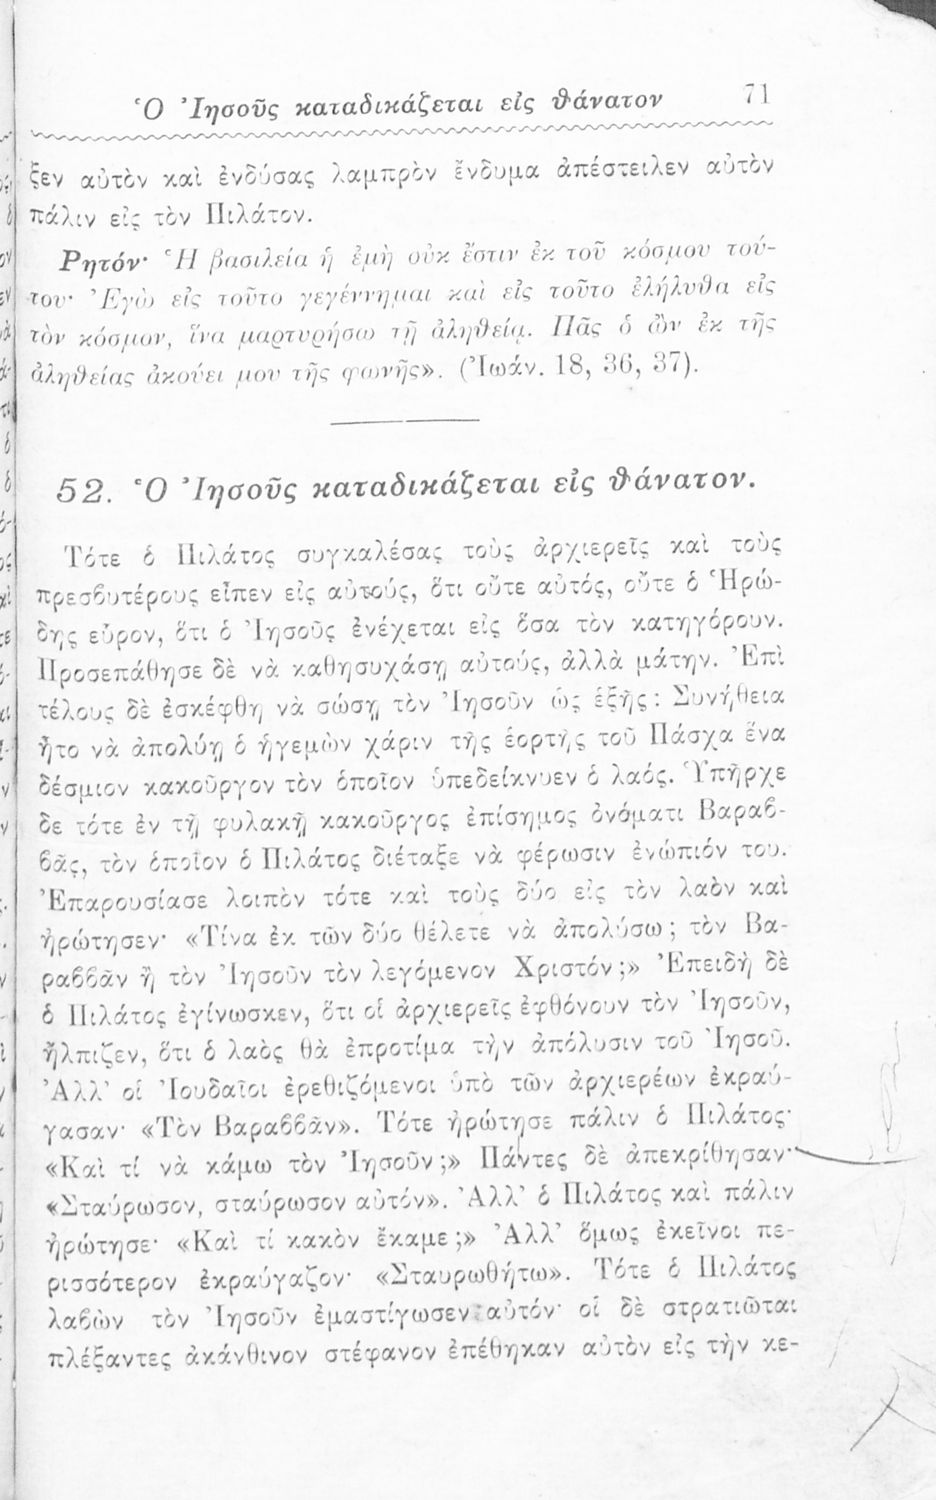 Ὁ Ἰησοῦς καταδικάζεται εἰς θάνατον 71
ξεν αὐτὸν καὶ ἐνδύσας λαμπρὸν ἔνδυμα ἀπέστειλεν αὐτὸν
πάλιν εἰς τὸν Πιλάτον.
Ρητόν· Ἡ βασιλεία ἡ ἐμὴ οὐκ ἔστιν ἐκ τοῦ κόσμου τού-
του· Ἐγὼ εἰς τοῦτο γεγέννημαι καὶ εἰς τοῦτο ἐλήλυθα εἰς
τὸν κόσμον, ἵνα μαρτυρήσω τῇ ἀληθείᾳ. Πᾶς ὁ ὢν ἐκ τῆς
ἀληθείας ἀκούει μου τῆς φωνῆς». (Ἰωάν. 18, 36, 37).
52. Ὁ Ἰησοῦς καταδικάζεται εἰς θάνατον.
Τότε ὁ Πιλάτος συγκαλέσας τοὺς ἀρχιερεῖς καὶ τοὺς
πρεσβυτέρους εἶπεν εἰς αὐτούς, ὅτι οὔτε αὐτός, οὔτε ὁ Ἡρώ-
δης εὗρον, ὅτι ὁ Ἰησοῦς ἐνέχεται εἰς ὅσα τὸν κατηγόρουν.
Προσεπάθησε δὲ νὰ καθησυχάσῃ αὐτούς, ἀλλὰ μάτην. Ἐπὶ
τέλους δὲ ἐσκέφθη νὰ σώσῃ τὸν Ἰησοῦν ὡς ἑξῆς: Συνήθεια
ἦτο νὰ ἀπολύῃ ὁ ἡγεμὼν χάριν τῆς ἑορτῆς τοῦ Πάσχα ἕνα
δέσμιον κακοῦργον τὸν ὁποῖον ὑπεδείκνυεν ὁ λαός. Ὑπῆρχε
δε τότε ἐν τῇ φυλακῇ κακοῦργος ἐπίσημος ὀνόματι Βαραβ-
βᾶς, τὸν ὁποῖον ὁ Πιλάτος διέταξε νὰ φέρωσιν ἐνώπιόν του.
Ἐπαρουσίασε λοιπὸν τότε καὶ τοὺς δύο εἰς τὸν λαὸν καὶ
ἠρώτησεν· «Τίνα ἐκ τῶν δύο θέλετε νὰ ἀπολύσω; τὸν Βα-
ραββᾶν ἢ τὸν Ἰησοῦν τὸν λεγόμενον Χριστόν;» Ἐπειδὴ δὲ
ὁ Πιλάτος ἐγίνωσκεν, ὅτι οἱ ἀρχιερεῖς ἐφθόνουν τὸν Ἰησοῦν,
ἤλπιζεν, ὅτι ὁ λαὸς θὰ ἐπροτίμα τὴν ἀπόλυσιν τοῦ Ἰησοῦ.
Ἀλλ' οἱ Ἰουδαῖοι ἐρεθιζόμενοι ὑπὸ τῶν ἀρχιερέων ἐκραύ-
γασαν· «Τὸν Βαραββᾶν». Τότε ἠρώτησε πάλιν ὁ Πιλάτος·
«Καὶ τί νὰ κάμω τὸν Ἰησοῦν;» Πάντες δὲ ἀπεκρίθησαν·
«Σταύρωσον, σταύρωσον αὐτόν». Ἀλλ' ὁ Πιλάτος καὶ πάλιν
ἠρώτησε· «Καὶ τί κακὸν ἔκαμε;» Ἀλλ' ὅμως ἐκεῖνοι πε-
ρισσότερον ἐκραύγαζον· «Σταυρωθήτω». Τότε ὁ Πιλάτος
λαβὼν τὸν Ἰησοῦν ἐμαστίγωσεν αὐτόν· οἱ δὲ στρατιῶται
πλέξαντες ἀκάνθινον στέφανον ἐπέθηκαν αὐτὸν εἰς τὴν κε-